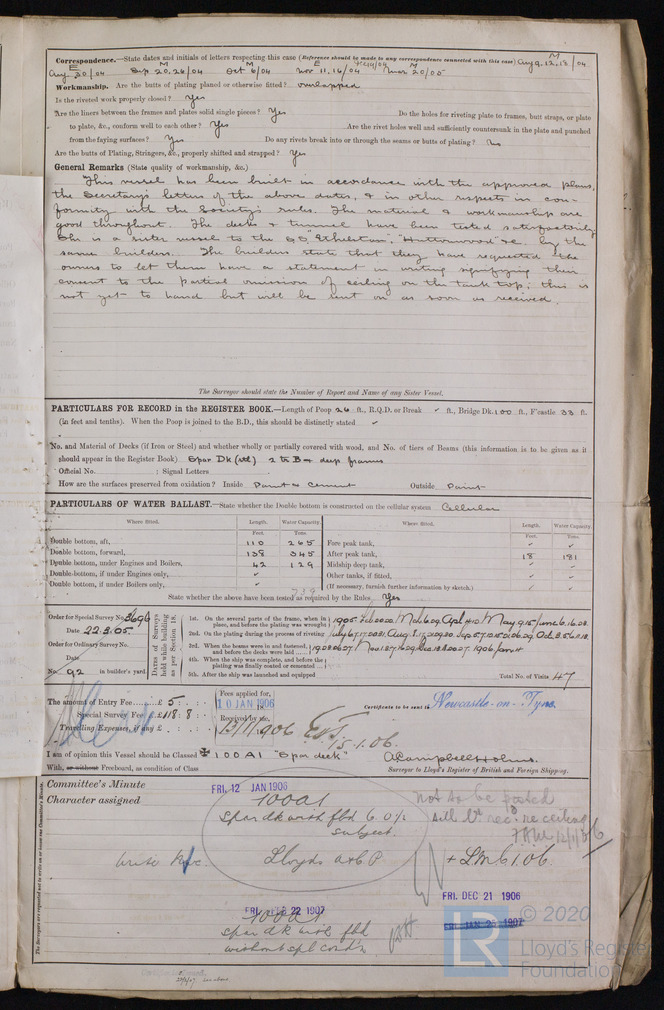 Correspondence.—State dates and initials of letters respecting this case (Reference should be made to any correspondence connected with this case) Aug 9. 12, 13 /04
Aug 30/04 Sep 20, 26/04 Oct 6/04 Nov 11, 16/04 Mar 20/05
Workmanship. Are the butts of plating planed or otherwise fitted? overlapped
Is the riveted work properly closed? Yes
Are the liners between the frames and plates solid single pieces? Yes Do the holes for riveting plate to frames, butt straps, or plate
to plate, &c., conform well to each other? Yes Are the rivet holes well and sufficiently countersunk in the plate and punched
from the faying surfaces? Yes Do any rivets break into or through the seams or butts of plating? No
Are the butts of Plating, Stringers, &c., properly shifted and strapped? Yes
General Remarks (State quality of workmanship, &c.)
This vessel has been built in accordance with the approved plans,
the Secretary's letters of the above dates, & in other respects in con-
formity with the Society's rules. The material & workmanship are
good throughout. The decks & tunnel have been tested satisfactorily
She is a sister vessel to the SS "Ethelston", "Huttonwood" &c. by the
same builders. The builders state that they have requested the
owners to let them have a statement in writing signifying their
consent to the partial omission of ceiling on the tank top; this is
not yet to hand but will be sent on as soon as received.
The Surveyor should state the Number of Report and Name of any Sister Vessel.
PARTICULARS FOR RECORD in the REGISTER BOOK.—Length of Poop 26 ft., R.Q.D. or Break ft., Bridge Dk. 100 ft., F'castle 33 ft.
(in feet and tenths). When the Poop is joined to the B.D., this should be distinctly stated
No. and Material of Decks (if Iron or Steel) and whether wholly or partially covered with wood, and No. of tiers of Beams (this information is to be given as it
should appear in the Register Book) Spar Dk (stl) 2 trs B & deep frames
Official No. ; Signal Letters
How are the surfaces preserved from oxidation? Inside Paint & Cement Outside Paint
PARTICULARS OF WATER BALLAST.—State whether the Double bottom is constructed on the cellular system Cellular
Where fitted. Length. Water Capacity. Where fitted. Length. Water Capacity.
Feet. Tons. Feet. Tons.
Double bottom, aft, 110 265 Fore peak tank,
Double bottom, forward, 138 345 After peak tank, 18 181
Double bottom, under Engines and Boilers, 42 129 Midship deep tank,
Double-bottom, if under Engines only, Other tanks, if fitted,
Double bottom, if under Boilers only, (If necessary, furnish further information by sketch.)
739
State whether the above have been tested as required by the Rules Yes
Order for Special Survey No. 3696
Date 22.3.05
Order for Ordinary Survey No.
Date
No. 92 in builder's yard.
Dates of Surveys held while building as per Section 18.
1st. On the several parts of the frame, when in place, and before the plating was wrought
2nd. On the plating during the process of riveting
3rd. When the beams were in and fastened, and before the decks were laid
4th. When the ship was complete, and before the plating was finally coated or cemented
5th. After the ship was launched and equipped
Total No. of Visits 47
The amount of Entry Fee £ 5 : :
Special Survey Fee £ 118 : 8 :
Travelling Expenses, if any £ : :
Fees applied for,
10 JAN 1906
Received by me,
13/1/1906
15.1.06.
Certificate to be sent to Newcastle-on-Tyne.
I am of opinion this Vessel should be Classed ✠ 100 A1 "Spar deck" A Campbell Holms.
With, or without Freeboard, as condition of Class Surveyor to Lloyd's Register of British and Foreign Shipping.
Committee's Minute FRI. 12 JAN 1906
Character assigned 100A1
Spar dk with fbd 6.0½
subject.
Lloyds A & C P
Write
Not to be posted
till Lr rec. re ceiling
12/1/06
+ LMC 1.06.
FRI. DEC 21 1906
FRI. FEB 22 1907
100A1
Spar dk with fbd
without spl condn
JAN 25 1907
The Surveyors are requested not to write on or across Committee's Minute.
© 2020
LR
Lloyd's Register
Foundation